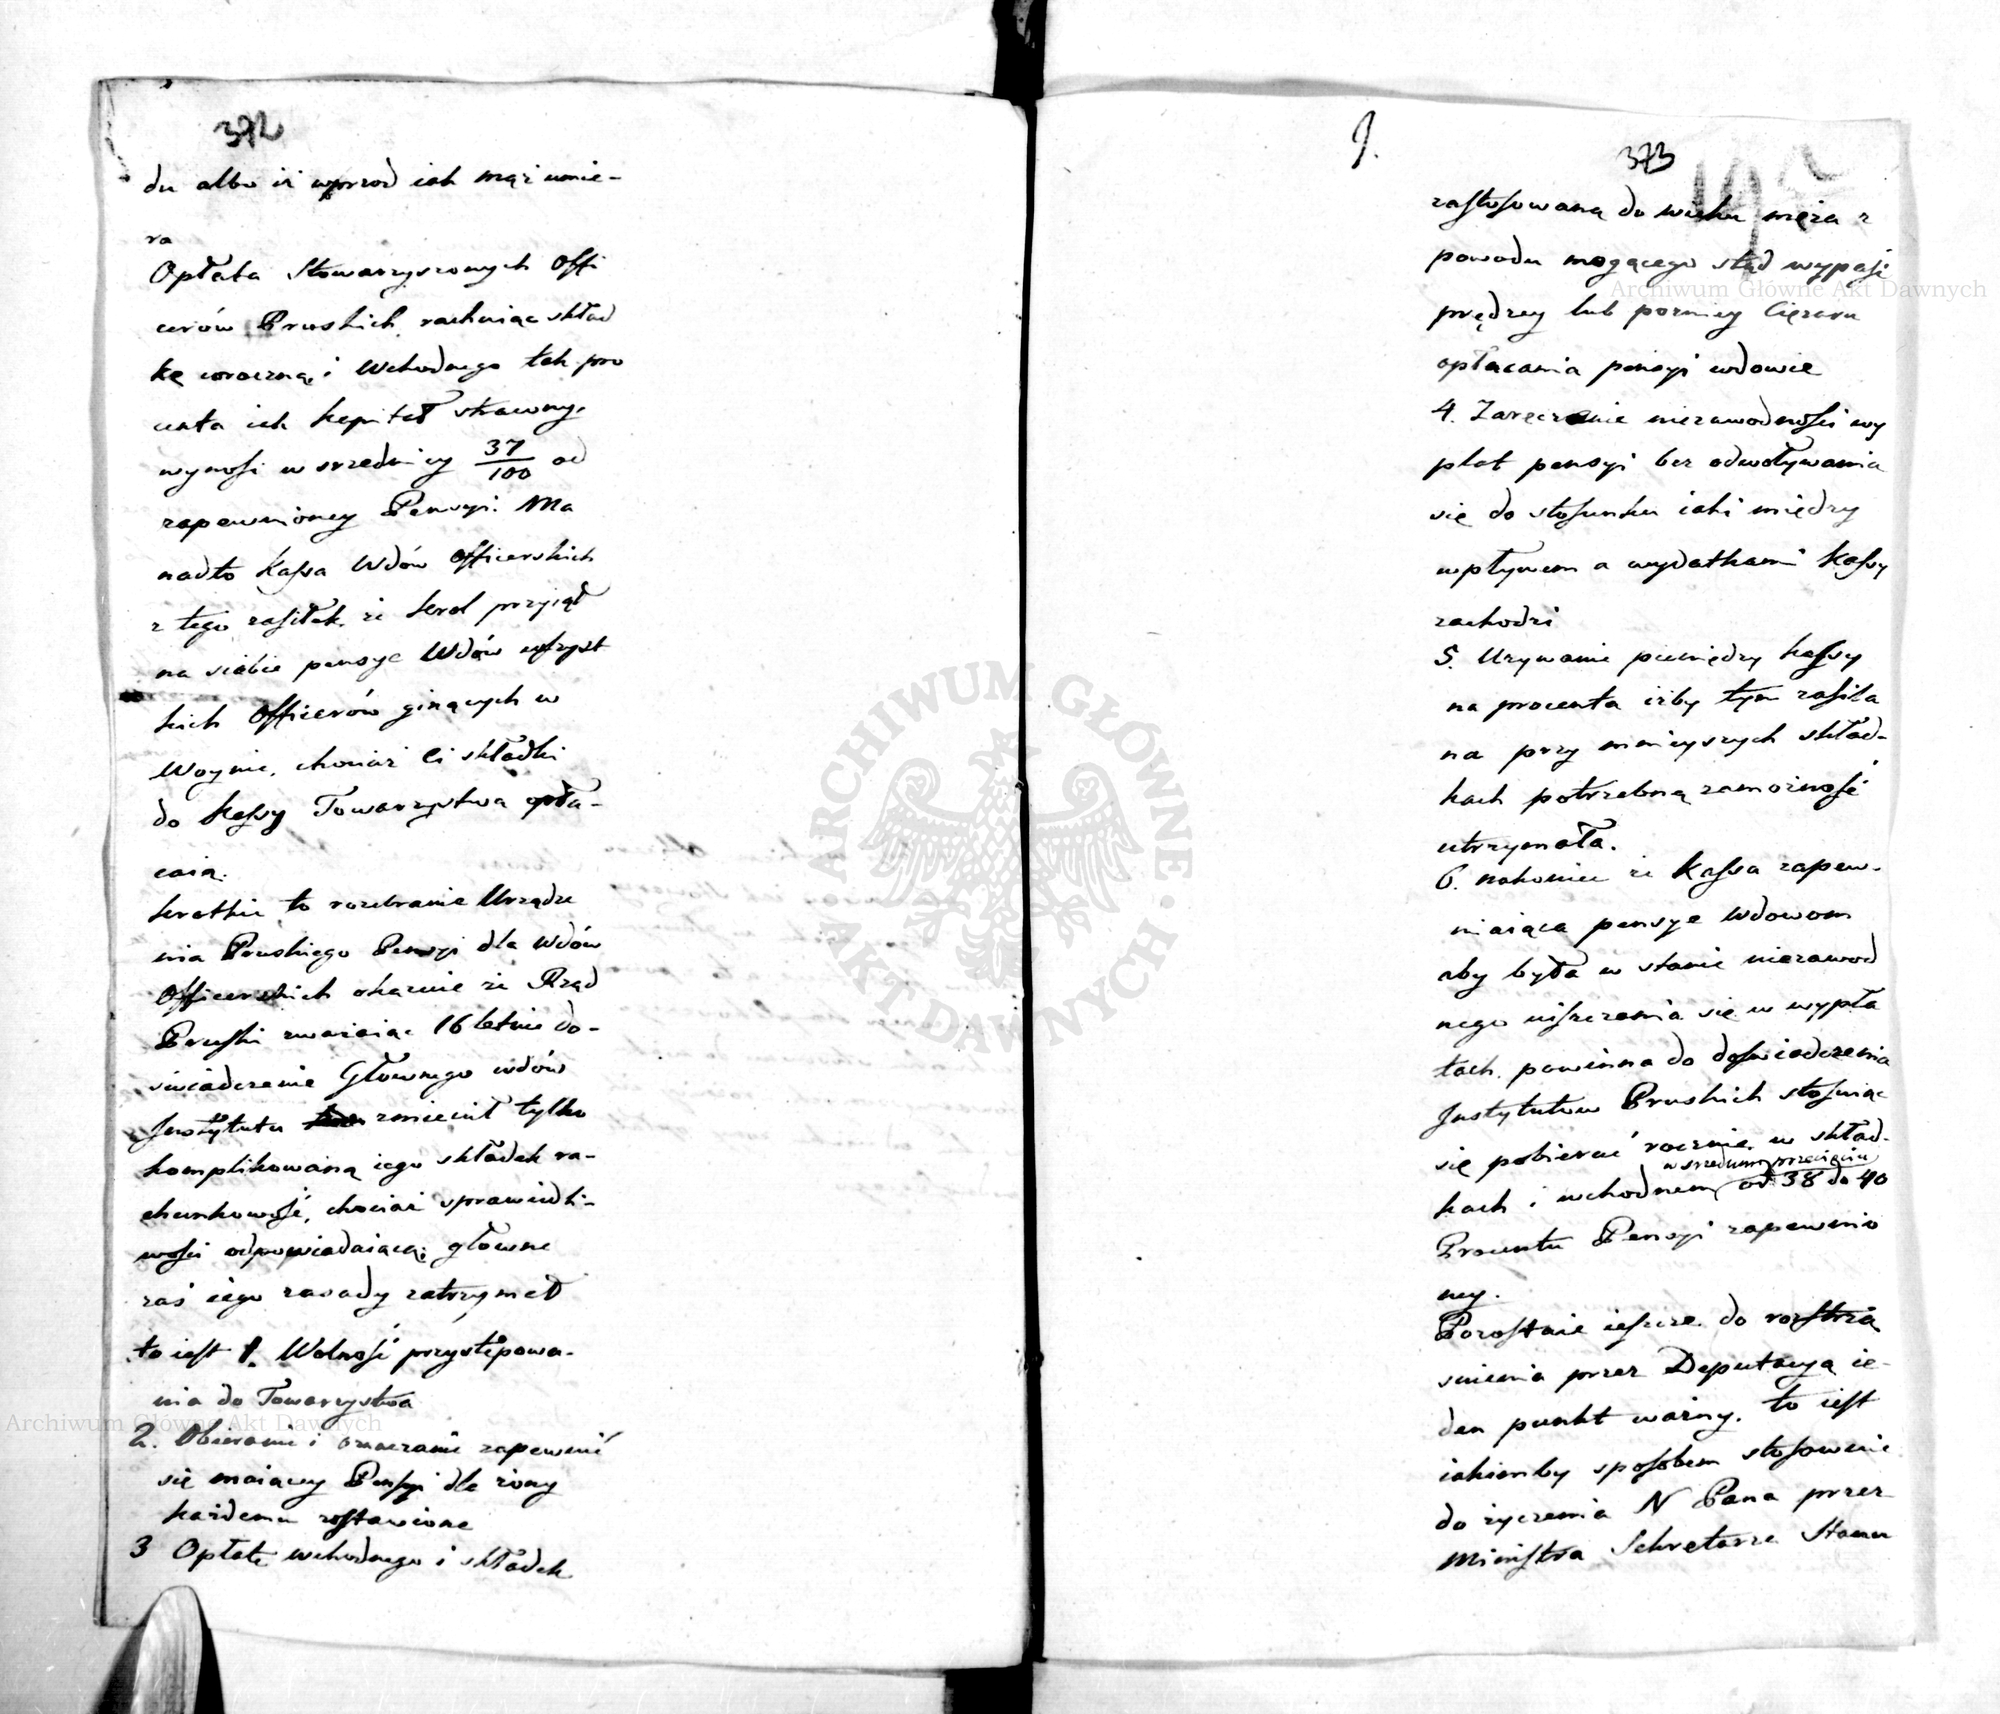 372
du albo iż wprzod ich mąż umie-
ra
Opłata Stowarzyszonych Offi
cerów Pruskich, rachuiąc skład
kę coroczną i Wchodnego tak pro
centa iak kapitał strawny,
wynosi w srzedniey 37/100 od
zapewnioney Pensyi. Ma
nadto Kassa Wdów Officerskich
z tego zasiłek, że Krol przyiął
na siebie pensye Wdów wszyst
kich Officerów ginących w
Woynie, chociaż Ci składki
do Kassy Towarzystwa opła-
caią.
Krotkie to rozebranie Urządze
nia Pruskiego Pensyi dla Wdów
Officerskich okazuie że Rząd
Pruski zważaiąc 16 letnie do-
świadczenie Głownego wdów
Instytutu zmienił tylko
komplikowaną iego składek ra-
chunkowość, chociaż sprawiedli-
wości odpowiadaiącą; głowne
zaś iego zasady zatrzymał
to iest 1. Wolność przystępowa-
nia do Towarzystwa
2. Obieranie i oznaczanie zapewnić
się maiącey Pensyi dla żony
każdemu zostawione
3 Opłatę wchodnego i składek
9.
373
zastosowaną do wieku męża z
powodu mogącego stąd wypaść
prędzey lub pozniey Ciężaru
opłacania pensyi wdowie
4. Zaręczenie niezawodności wy
płat pensyi bez odwoływania
się do stosunku iaki między
wpływem a wydatkami Kassy
zachodzi
5. Używanie pieniędzy Kassy
na procenta iżby tym zasila
na przy mnieyszych skład-
kach potrzebną zamożność
utrzymała.
6. nakoniec że Kassa zapew-
niaiąca pensye Wdowom
aby była w stanie niezawod
nego uiszczania się w wypła
tach, powinna do doświadczenia
Instytutow Pruskich stosuiąc
się pobierać rocznie w skład-
w srzednim przecięciu
kach i wchodnem od 38 do 40
Procentu Pensyi zapewnio
ney.
Pozostaie ieszcze do rozstrzą
snienia przez Deputacyą ie-
den punkt ważny, to iest
iakimby sposobem stosownie
do życzenia N Pana przez
Ministra Sekretarza Stanu
Archiwum Główne Akt Dawnych
Archiwum Główne Akt Dawnych
ARCHIWUM GŁÓWNE AKT DAWNYCH